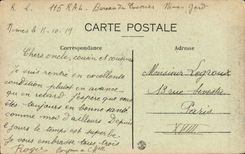 115 R.A.L. Bureau du Trésorier
CARTE POSTALE
Correspondance
Nîmes le 15-10-19
Cher oncle, cousin et cousine
Je suis rentré en excellente
condition plutôt en avance
qu'en retard. J'espère que vous
êtes toujours en bonne santé
comme moi d'ailleurs. Depuis
jours le temps est superbe
Je vous embrasse tous trois
Roger
Monsieur Legroux
13 rue
Paris
XVIII